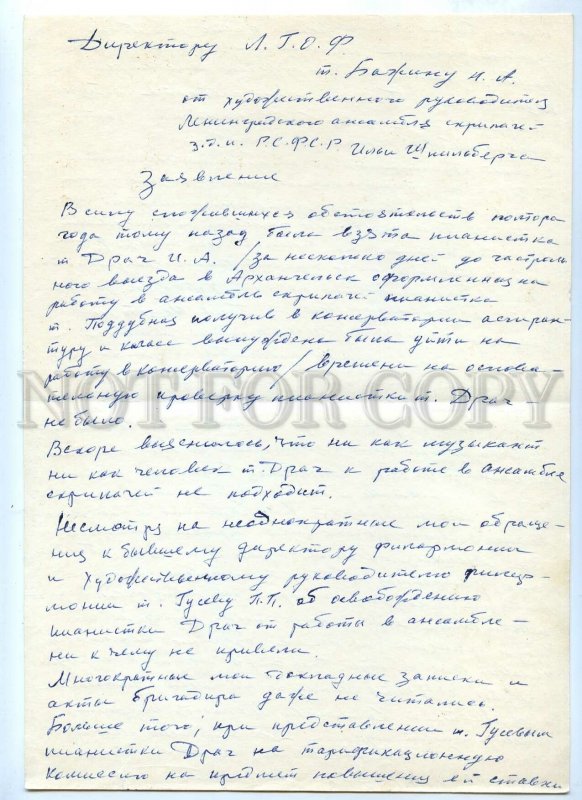 Директору Л.Г.О.Ф
т. Бажину И.А.
от художественного руководителя
Ленинградского ансамбля скрипачей
з.д.и. Р.С.Ф.С.Р Ильи Шпильберга
Заявление
В силу сложившихся обстоятельств полтора
года тому назад была взята пианистка
т Драч И.А. /за несколько дней до гастроль
ного выезда в Архангельск оформленная на
работу в ансамбль скрипачей пианистка
т. Поддубная получив в консерватории аспиран-
туру и класс вынуждена была уйти на
работу в консерваторию/ времени на основа-
тельную проверку пианистки т. Драч -
не было.
Вскоре выяснилось, что ни как музыкант
ни как человек т. Драч к работе в ансамбле
скрипачей не подходит.
Несмотря на неоднократные мои обраще-
ния к бывшему директору филармонии
и художественному руководителю филар-
монии т. Гусеву П.П. об освобождению
пианистки Драч от работы в ансамбле -
ни к чему не привели.
Многократные мои докладные записки и
акты бригадира даже не читались.
Больше того, при представлении т. Гусевым
пианистки Драч на тарификационную
комиссию на предмет повышения ей ставки
NOT FOR COPY